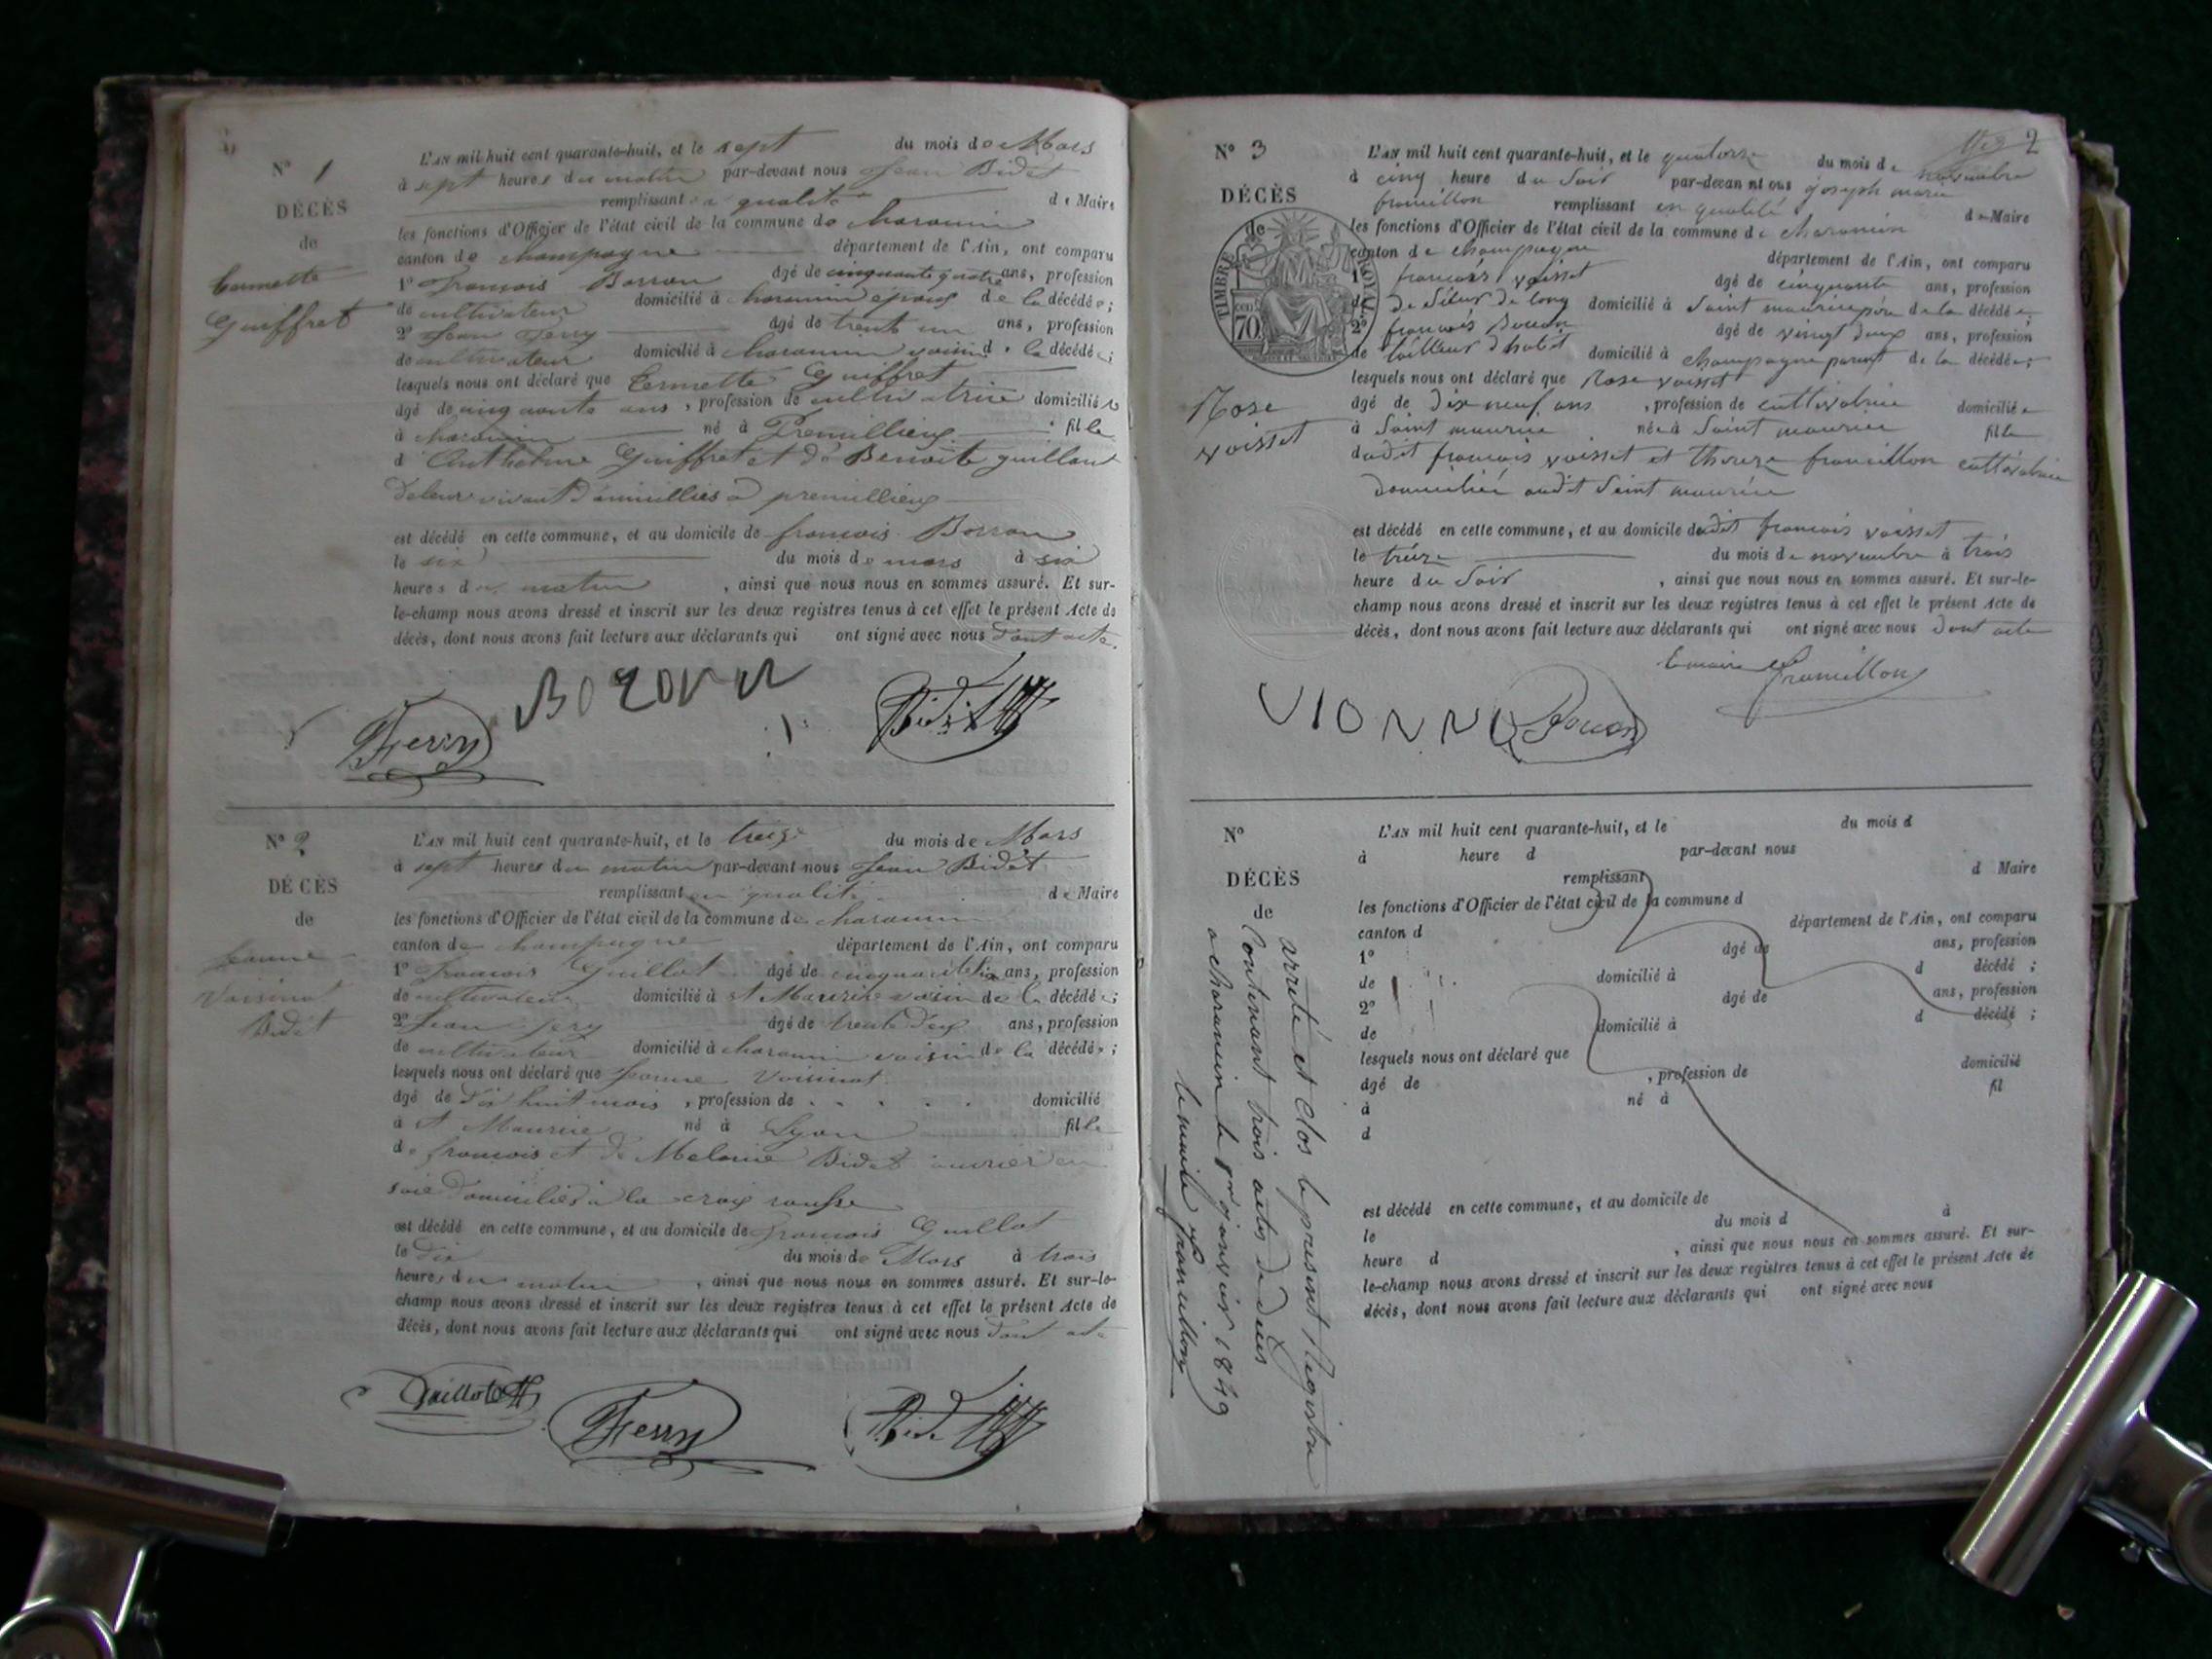 N° 1
DÉCÈS
de
Guiffret
L'AN mil huit cent quarante-huit, et le sept du mois de Mars
à sept heures du matin par-devant nous Jean Bidet
remplissant en qualité de Maire
les fonctions d'Officier de l'état civil de la commune de charancin
canton de champagne département de l'Ain, ont comparu
1° François Borron âgé de cinquante quatre ans, profession
de cultivateur domicilié à charancin époux de la décédée ;
2° Jean Ferry âgé de trente un ans, profession
de cultivateur domicilié à charancin voisin de la décédée ;
lesquels nous ont déclaré que Guiffret
âgé de cinquante ans , profession de cultivatrice domiciliée
à charancin né à Premillieu fille
d'Anthelme Guiffret et de Benoite guilland
de leur vivant domiciliés à premillieu
est décédé en cette commune, et au domicile de francois Borron
le six du mois de mars à six
heures du matin , ainsi que nous nous en sommes assuré. Et sur-
le-champ nous avons dressé et inscrit sur les deux registres tenus à cet effet le présent Acte de
décès, dont nous avons fait lecture aux déclarants qui ont signé avec nous Dont acte.
Ferry
Bidet
N° 2
DÉCÈS
de
Jeanne
Voisinat
Bidet
L'AN mil huit cent quarante-huit, et le treize du mois de Mars
à sept heures du matin par-devant nous Jean Bidet
remplissant en qualité de Maire
les fonctions d'Officier de l'état civil de la commune de charancin
canton de champagne département de l'Ain, ont comparu
1° francois Guillot âgé de cinquante six ans, profession
de cultivateur domicilié à St Maurice voisin de la décédée ;
2° Jean fery âgé de trente deux ans, profession
de cultivateur domicilié à charancin voisin de la décédée ;
lesquels nous ont déclaré que Jeanne Voisinat
âgé de dix huit mois , profession de domicilié
à St Maurice né à Lyon fille
de francois et de Melanie Bidet ouvrier en
soie domiciliés à la croix rousse
est décédé en cette commune, et au domicile de francois Guillot
le dix du mois de Mars à trois
heures du matin , ainsi que nous nous en sommes assuré. Et sur-le-
champ nous avons dressé et inscrit sur les deux registres tenus à cet effet le présent Acte de
décès, dont nous avons fait lecture aux déclarants qui ont signé avec nous dont acte
Guillot
Ferry
Bidet
2
N° 3
DÉCÈS
de
TIMBRE ROYAL
70
Rose
voisset
L'AN mil huit cent quarante-huit, et le quatorze du mois de novembre
à cinq heure du soir par-devan nt ous joseph marie
framillon remplissant en qualité de Maire
les fonctions d'Officier de l'état civil de la commune de charancin
canton de champagne département de l'Ain, ont comparu
1° francois voisset âgé de cinquante ans, profession
de domicilié à Saint maurice père de la décédée
2° francois Bouon âgé de vingt deux ans, profession
de tailleur d'habit domicilié à champagne parent de la décédée ;
lesquels nous ont déclaré que Rose voisset
âgé de dix neuf ans , profession de cultivatrice domiciliée
à Saint maurice née à Saint maurice fille
dudit francois voisset et therese framillon cultivatrice
domiciliée audit Saint maurice
est décédé en cette commune, et au domicile dudit francois voisset
le treize du mois de novembre à trois
heure du soir , ainsi que nous nous en sommes assuré. Et sur-le-
champ nous avons dressé et inscrit sur les deux registres tenus à cet effet le présent Acte de
décès, dont nous avons fait lecture aux déclarants qui ont signé avec nous dont acte
framillon
N°
DÉCÈS
de
L'AN mil huit cent quarante-huit, et le du mois d
à heure d par-devant nous
remplissant d Maire
les fonctions d'Officier de l'état civil de la commune d
canton d département de l'Ain, ont comparu
1° âgé de ans, profession
de domicilié à d décédé ;
2° âgé de ans, profession
de domicilié à d décédé ;
lesquels nous ont déclaré que
âgé de , profession de domicilié
à né à fil
d
est décédé en cette commune, et au domicile de
le du mois d à
heure d , ainsi que nous nous en sommes assuré. Et sur-
le-champ nous avons dressé et inscrit sur les deux registres tenus à cet effet le présent Acte de
décès, dont nous avons fait lecture aux déclarants qui ont signé avec nous
arreté et clos le present Registre
Contenant trois actes de deces
a charancin le 1er janvier 1849
le maire framillon